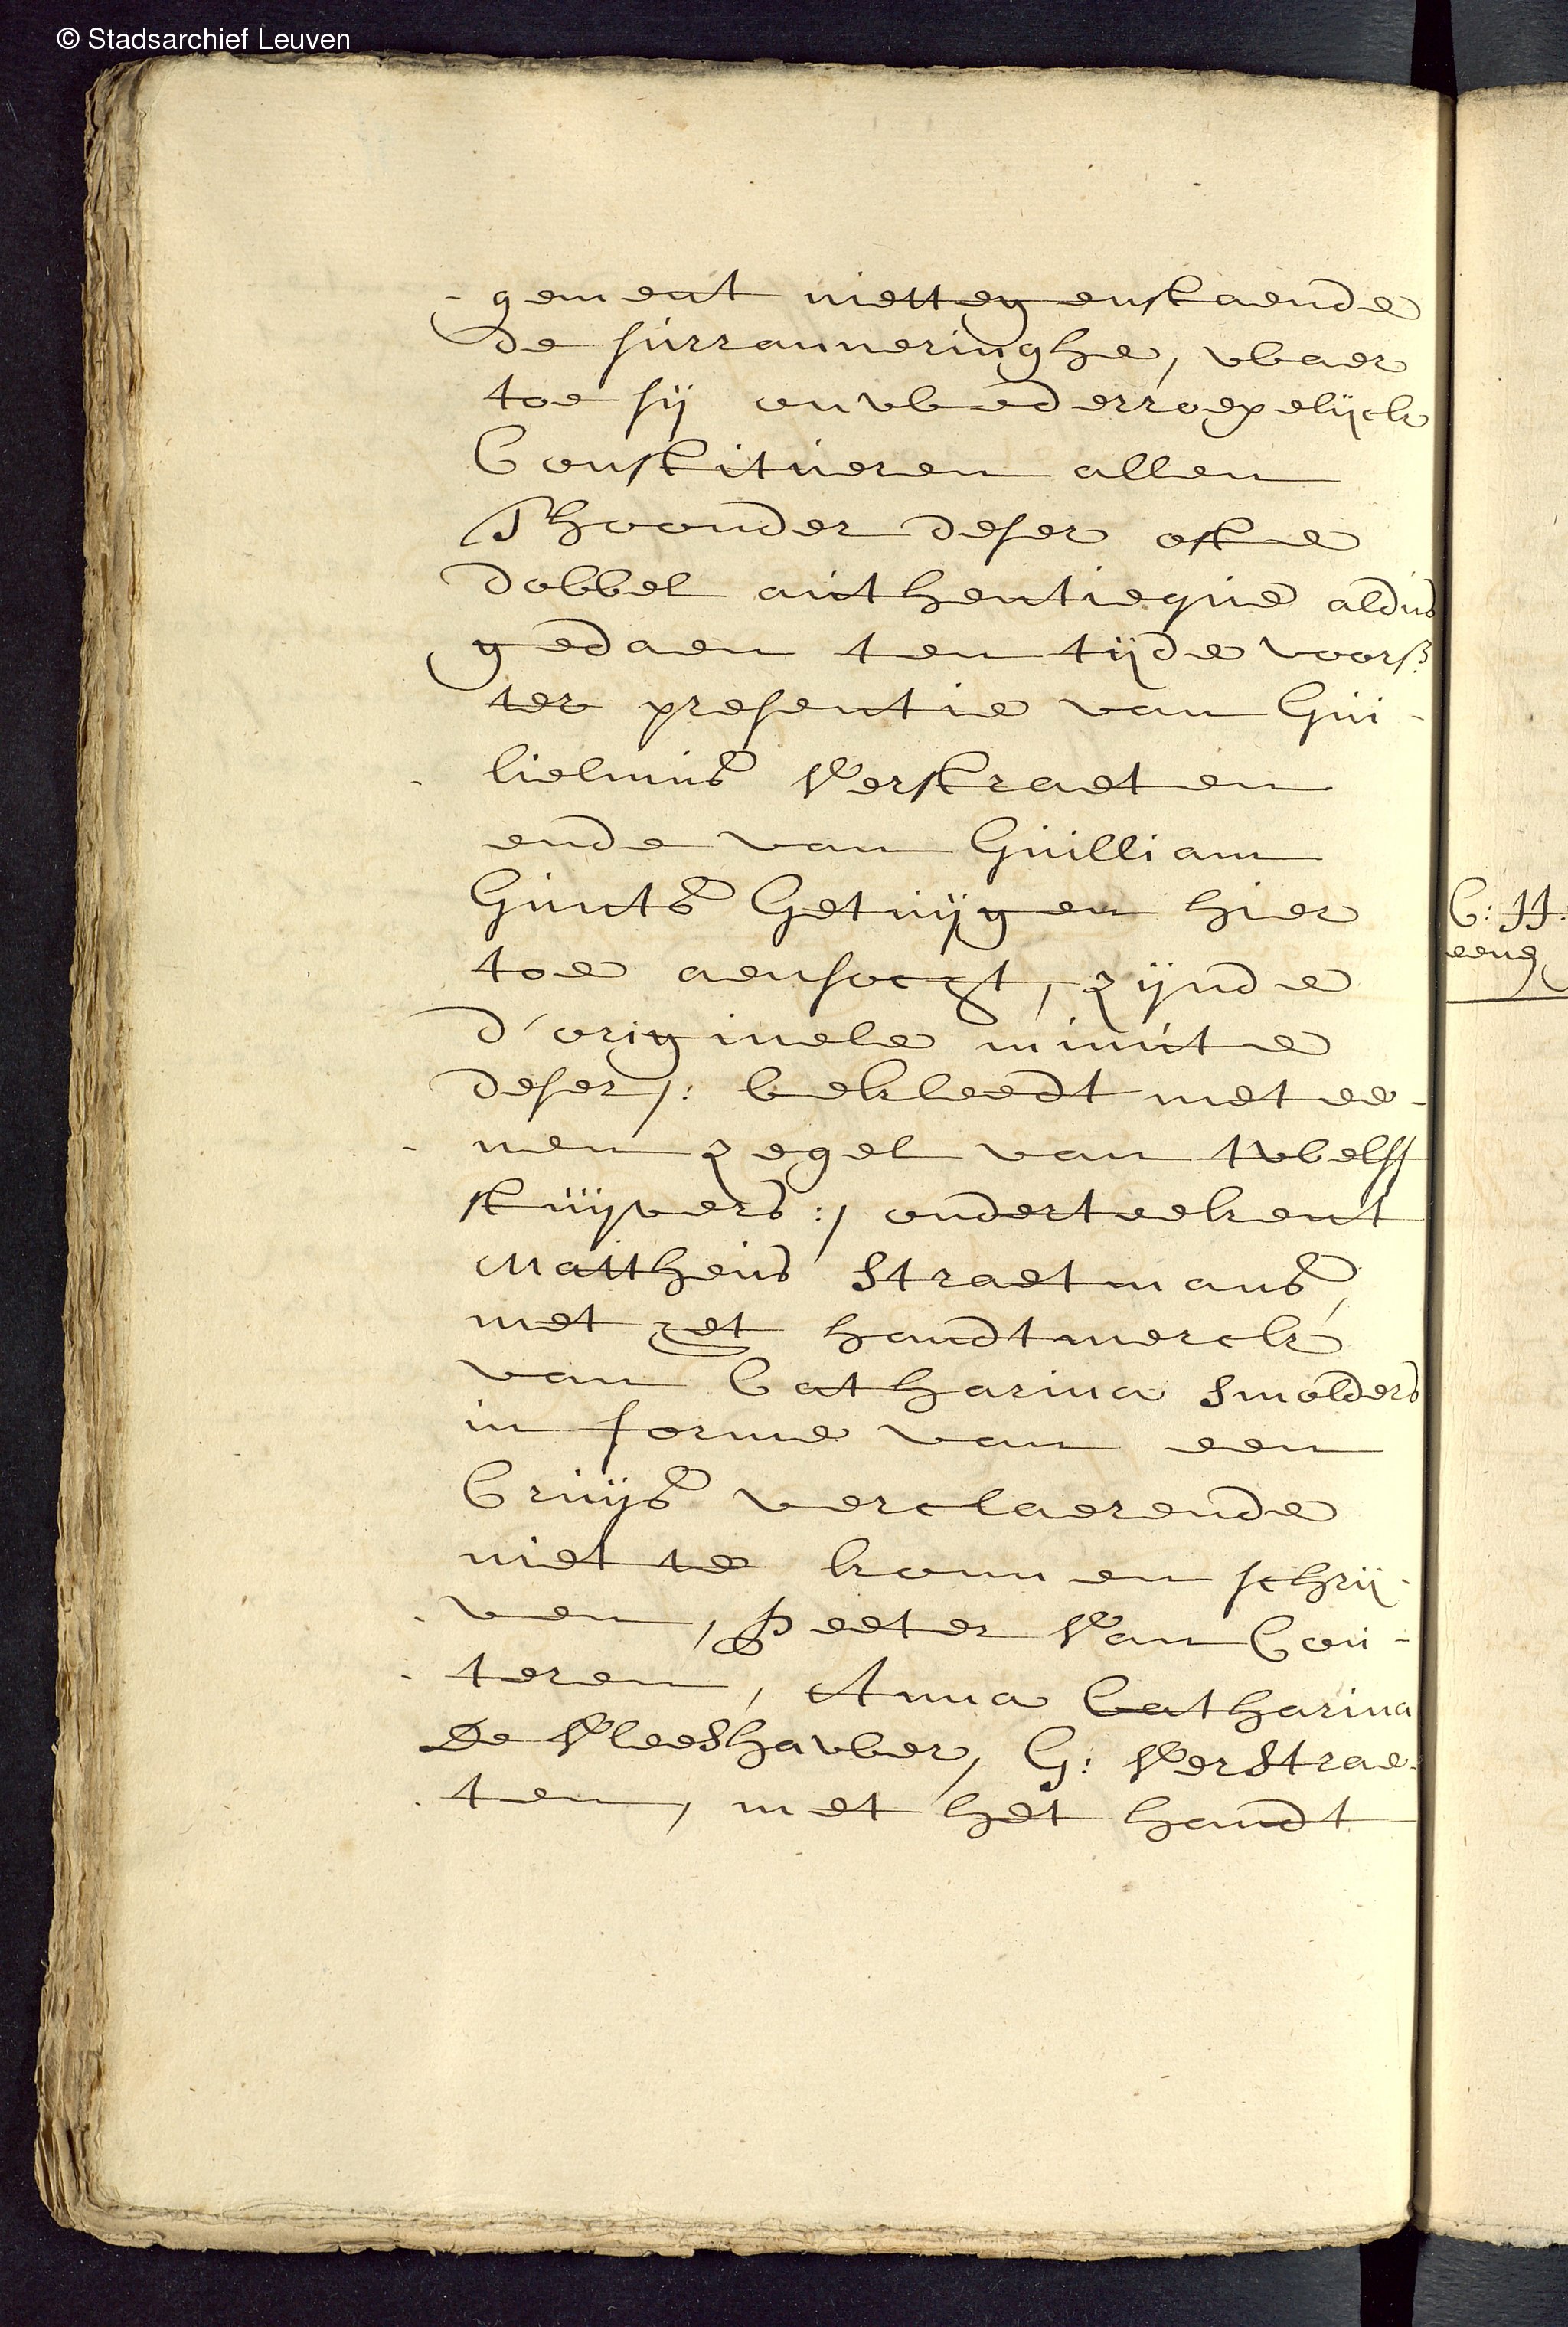 © Stadsarchief Leuven
- gement niettegenstaende
de surranneringhe, waer
toe sij onwederroepelijck
Constitueren allen
Thoonder deser ofte
dobbel authentieque aldus
gedaen ten tijde voors.
ter presentie van Gui-
- lielmus Verstraeten
ende van Guilliam
Gunts Getuijgen hier
toe aensocht, zijnde
d'originele minute
deser /: bekleedt met ee-
- nen zegel van twelff
stuijvers :/ onderteekent
Mattheus Straetmans,
met het handtmerck
van Catharina Smolders
in forme van een
Cruijs verclaerende
niet te konnen schrij-
- ven, Peeter Van Cou-
- teren, Anna Catharina
De Vleeshauwer, G: Verstrae-
- ten, met het handt